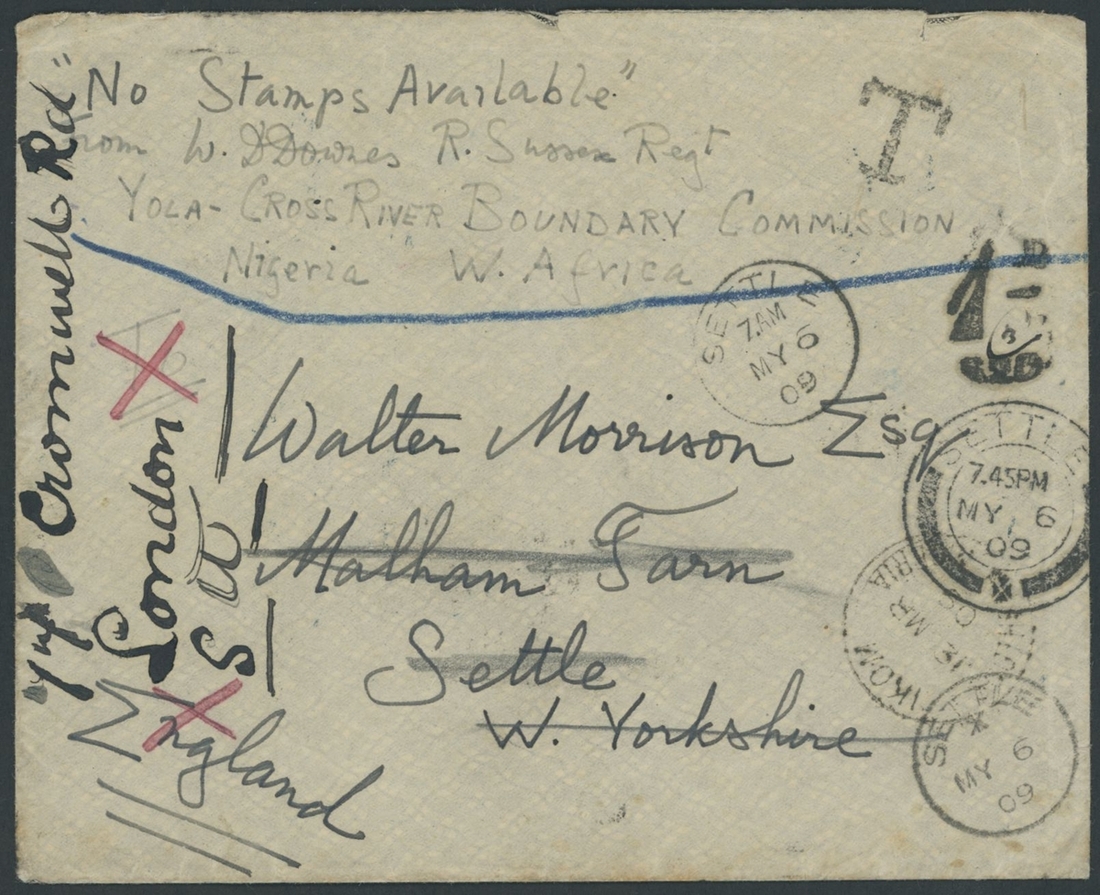 "No Stamps Available"
From W. D Downes R. Sussex Regt
YOLA-CROSS RIVER BOUNDARY COMMISSION
Nigeria W. Africa
T
1D
SETTLE
7.AM
MY 6
09
Walter Morrison Esq
Malham Tarn
Settle
W. Yorkshire
England
Cromwell Rd
London
S W
SETTLE
7.45PM
MY 6
09
IKOM
MR
SETTLE
MY 6
09